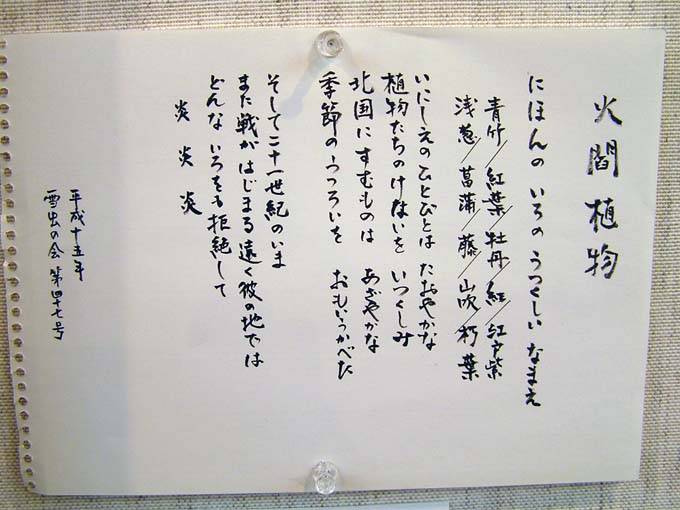 火閻植物
にほんの いろの うつくしい なまえ
青竹/紅葉/牡丹/紅/江戸紫
浅葱/菖蒲/藤/山吹/朽葉
いにしえのひとびとは たおやかな
植物たちのけはいを いつくしみ
北国にすむものは あざやかな
季節のうつろいを おもいうかべた
そして二十一世紀のいま
また戦がはじまる遠く彼の地では
どんな いろをも拒絶して
炎 炎 炎
平成十五年
雪虫の会 第四十七号